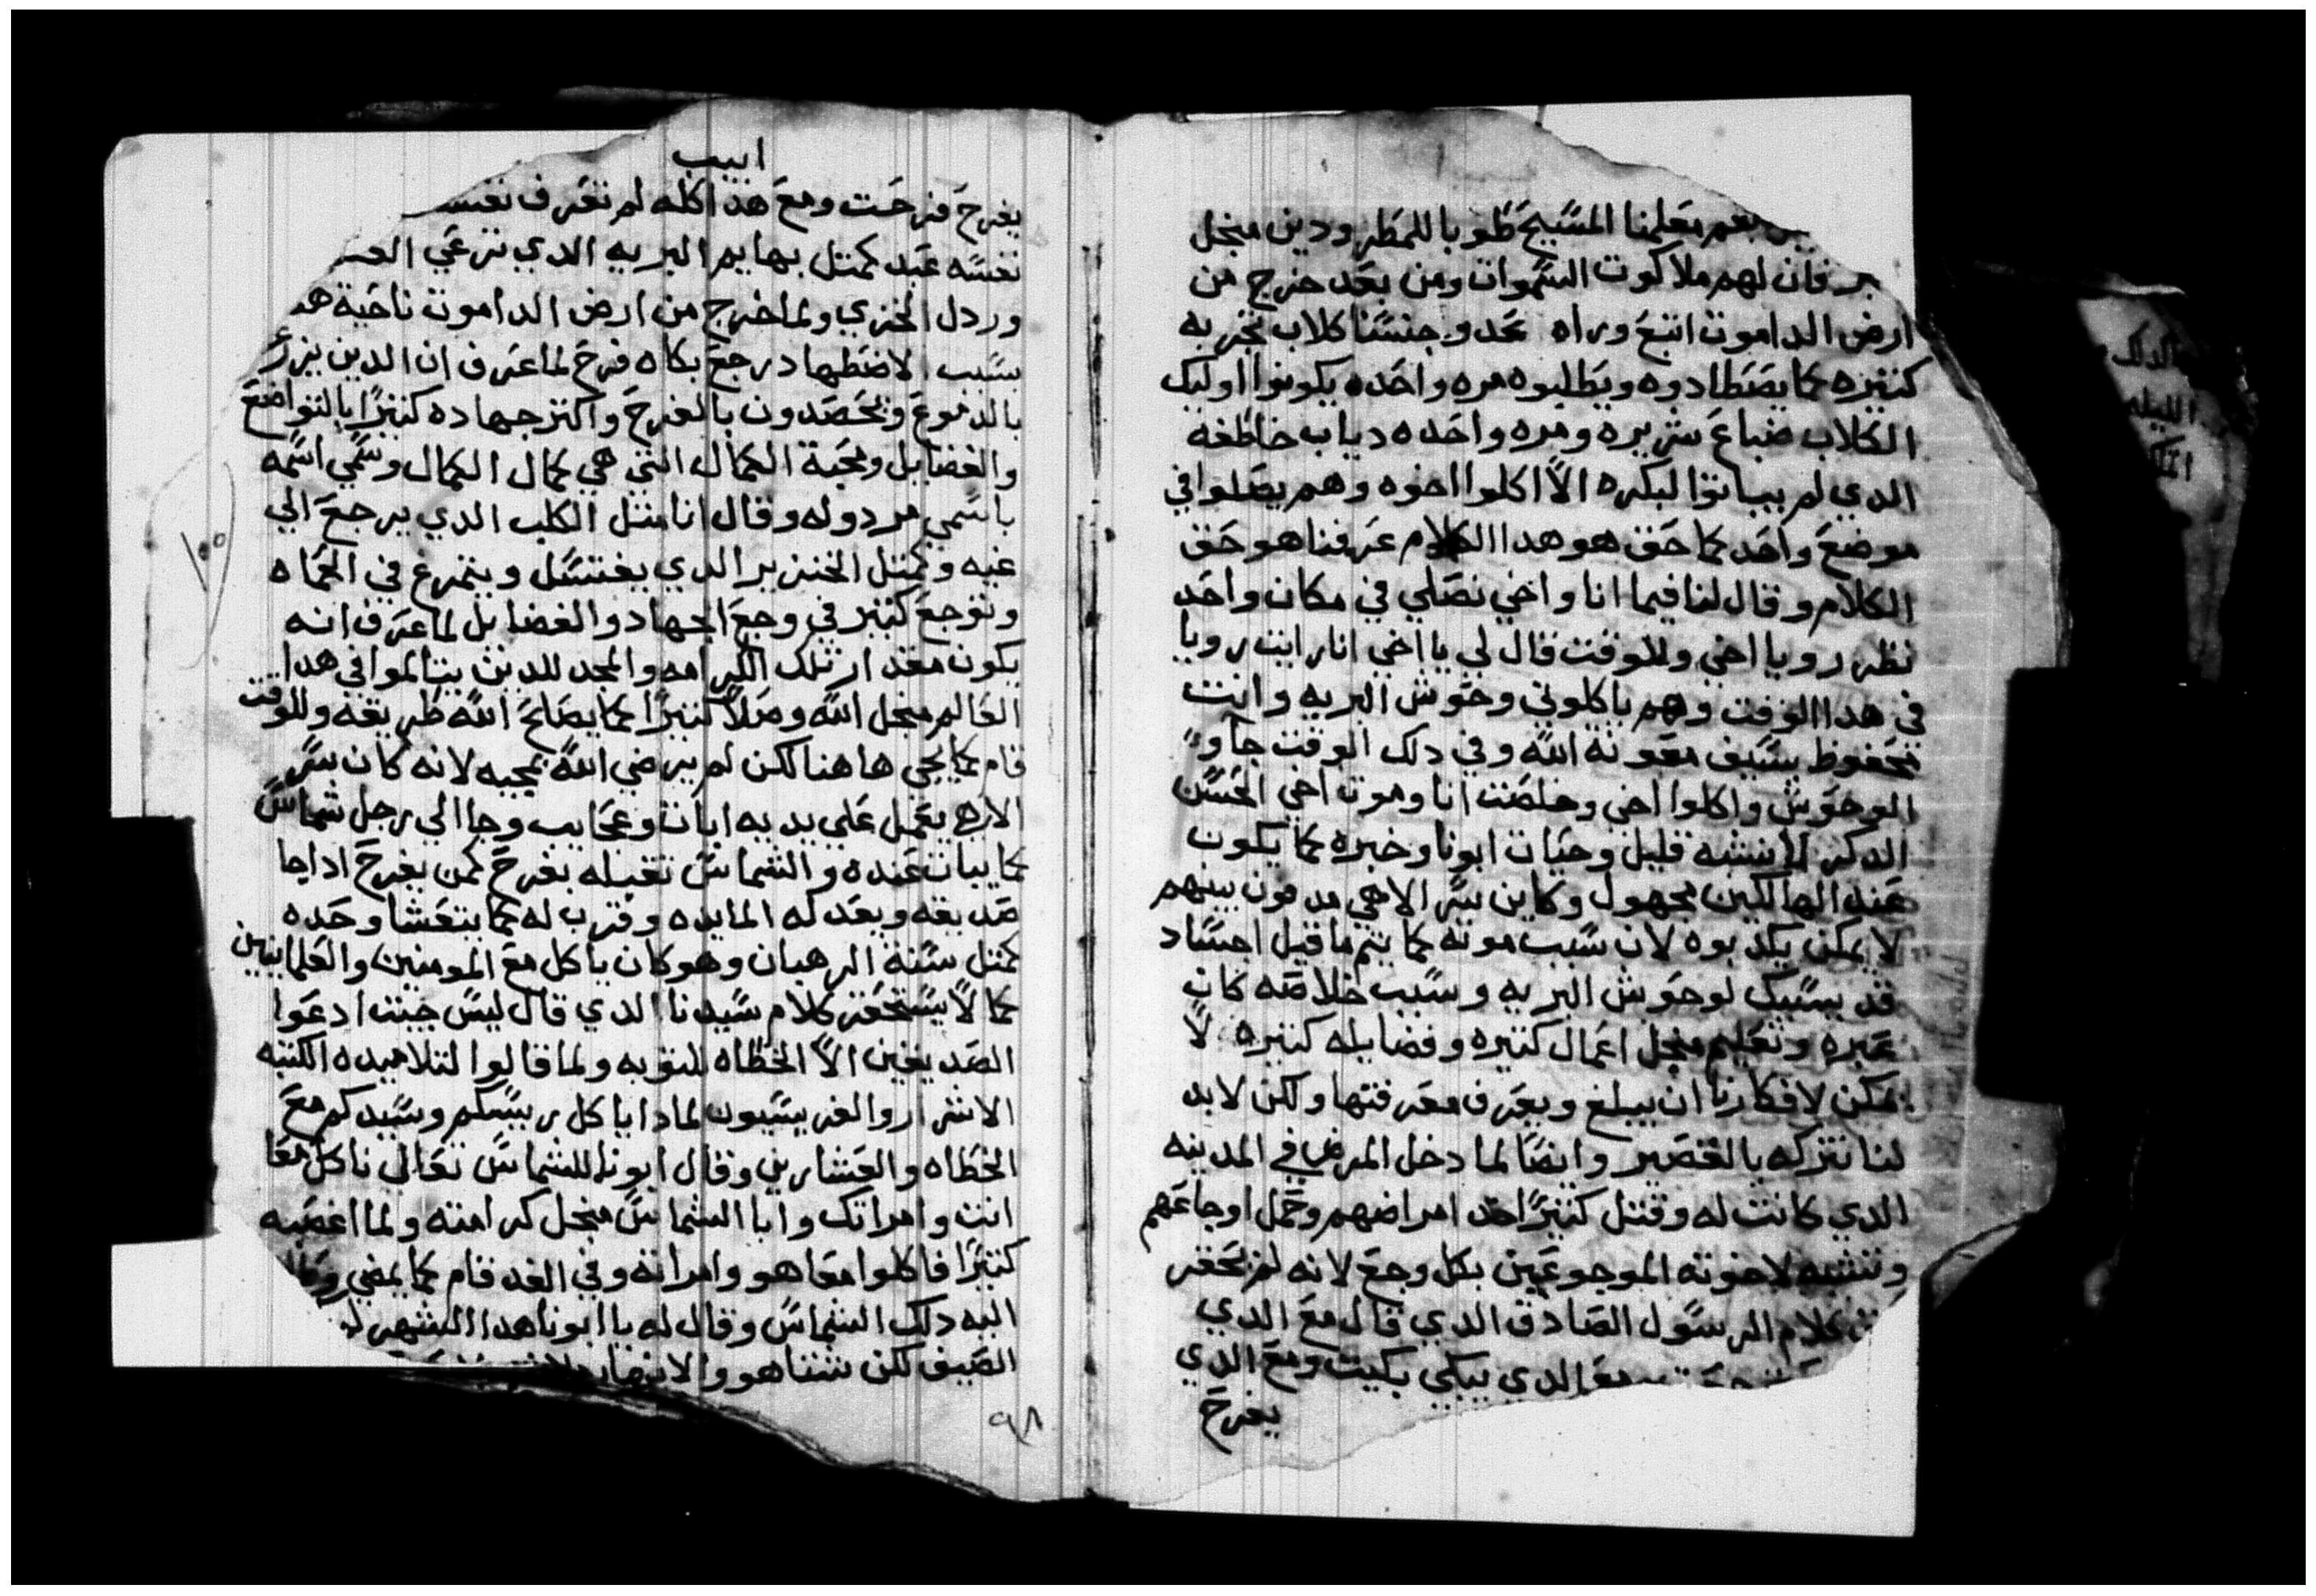 بعهم معلمنا المسيح طوبا للمطرودين منجل
البر فان لهم ملاكوت السموات ومن بعد خرج من
ارض الداموت اتبع وراه عدو جنسنا كلاب بحريه
كتيره كما يصطادوه ويطلبوه مره واحده يكونوا اوليك
الكلاب ضباع شريره ومره واحده دياب خاطفه
الدي لم يباتوا لبكره الا اكلوا اخوه وهم يصلوا في
موضع واحد كما حق هو هدا الكلام عرفنا هو حق
الكلام وقال لنا فيما انا واخي نصلي في مكان واحد
نظر رويا اخي وللوقت قال لي يا اخي انا رايت رويا
في هدا الوقت وهم ياكلوني وحوش البريه وانت
محفوظ بسيف معونة الله وفي دلك الوقت جآو
الوحوش واكلوا اخي وخلصت انا وموت اخي الحسن
الدكر لا ينسه قليل وحيات ابونا وخبره كما يكون
عند الهالكين مجهول وكاين سر الاهي مدفون بينهم
لا يمكن يكدبوه لان سبب موته كما يتم ما قيل اجساد
قديسيك لوحوش البريه وسبب خلاصه كان
عبره وتعليم منجل اعمال كتيره وفضايله كتيره لا
يمكن لافكارنا ان يبلغ ويعرف معرفتها ولكن لابد
لنا نتركه بالقصير وايضا لما دخل المرض في المدينه
الدي كانت له وقتل كتيرا اخد امراضهم وحمل اوجاعهم
وتشبه لاخوته الموجوعين بكل وجع لانه لم يحقر
كلام الرسول الصادق الدي قال مع الدي
مع الدي يبكي بكيت ومع الدي
يفرح
ابيب
يفرح فرحت ومع هدا كله لم تعرف نفسه
نفسه عبد كمتل بهايم البريه الدي ترعي العشب
وردل الخزي ولما خرج من ارض الداموت ناحية
بسبب الاضطهاد رجع بكاه فرح لما عرف ان الدين يزرع
بالدموع ويحصدون بالفرح واكتر جهاده كتيرا بالتواضع
والفضايل ومحبة الكمال التي هي كمال الكمال وسمي اسمه
باسمي مردوله وقال انا متل الكلب الدي يرجع الي
غيه وكمتل الخنزير الدي يغتسل ويتمرغ في الحماه
وتوجع كتير في وجع الجهاد والفضايل لما عرف انه
يكون مقدار تلك الكرامه والمجد للدين يتالموا في هدا
العالم منجل الله وصلا كتيرا كما يصلح الله طريقه وللوقت
قام كما يجي هاهنا لكن لم يرضي الله بمجيه لانه كان سر
الاهي يعمل علي يديه ايات وعجايب وجا الي رجل شماس
كما يبات عنده والشماس تقبله بفرح كمن يفرح اداجا
صديقه وبعد له المايده وقرب له كما يتعشا وحده
كمتل سنة الرهبان وهو كان ياكل مع المومنين والعلمانيين
كما لا يستحقر كلام سيدنا الدي قال ليس جيت ادعوا
الصديقين الا الخطاه للتوبه ولما قالوا لتلاميده الكتبه
الاشرار والفريسيون لمادا ياكل ريسكم وسيدكم مع
الخطاه والعشارين وقال ابونا للشماس تعالي ناكل معا
انت وامراتك وابا الشماس منجل كرامته ولما اغصبه
كتيرا فاكلوا معا هو وامراته وفي الغد قام كما يمضي وقال
اليه دلك الشماس وقال له يا ابونا هدا الشهر
الصيف لكن شتا هو والانهار
٩٨